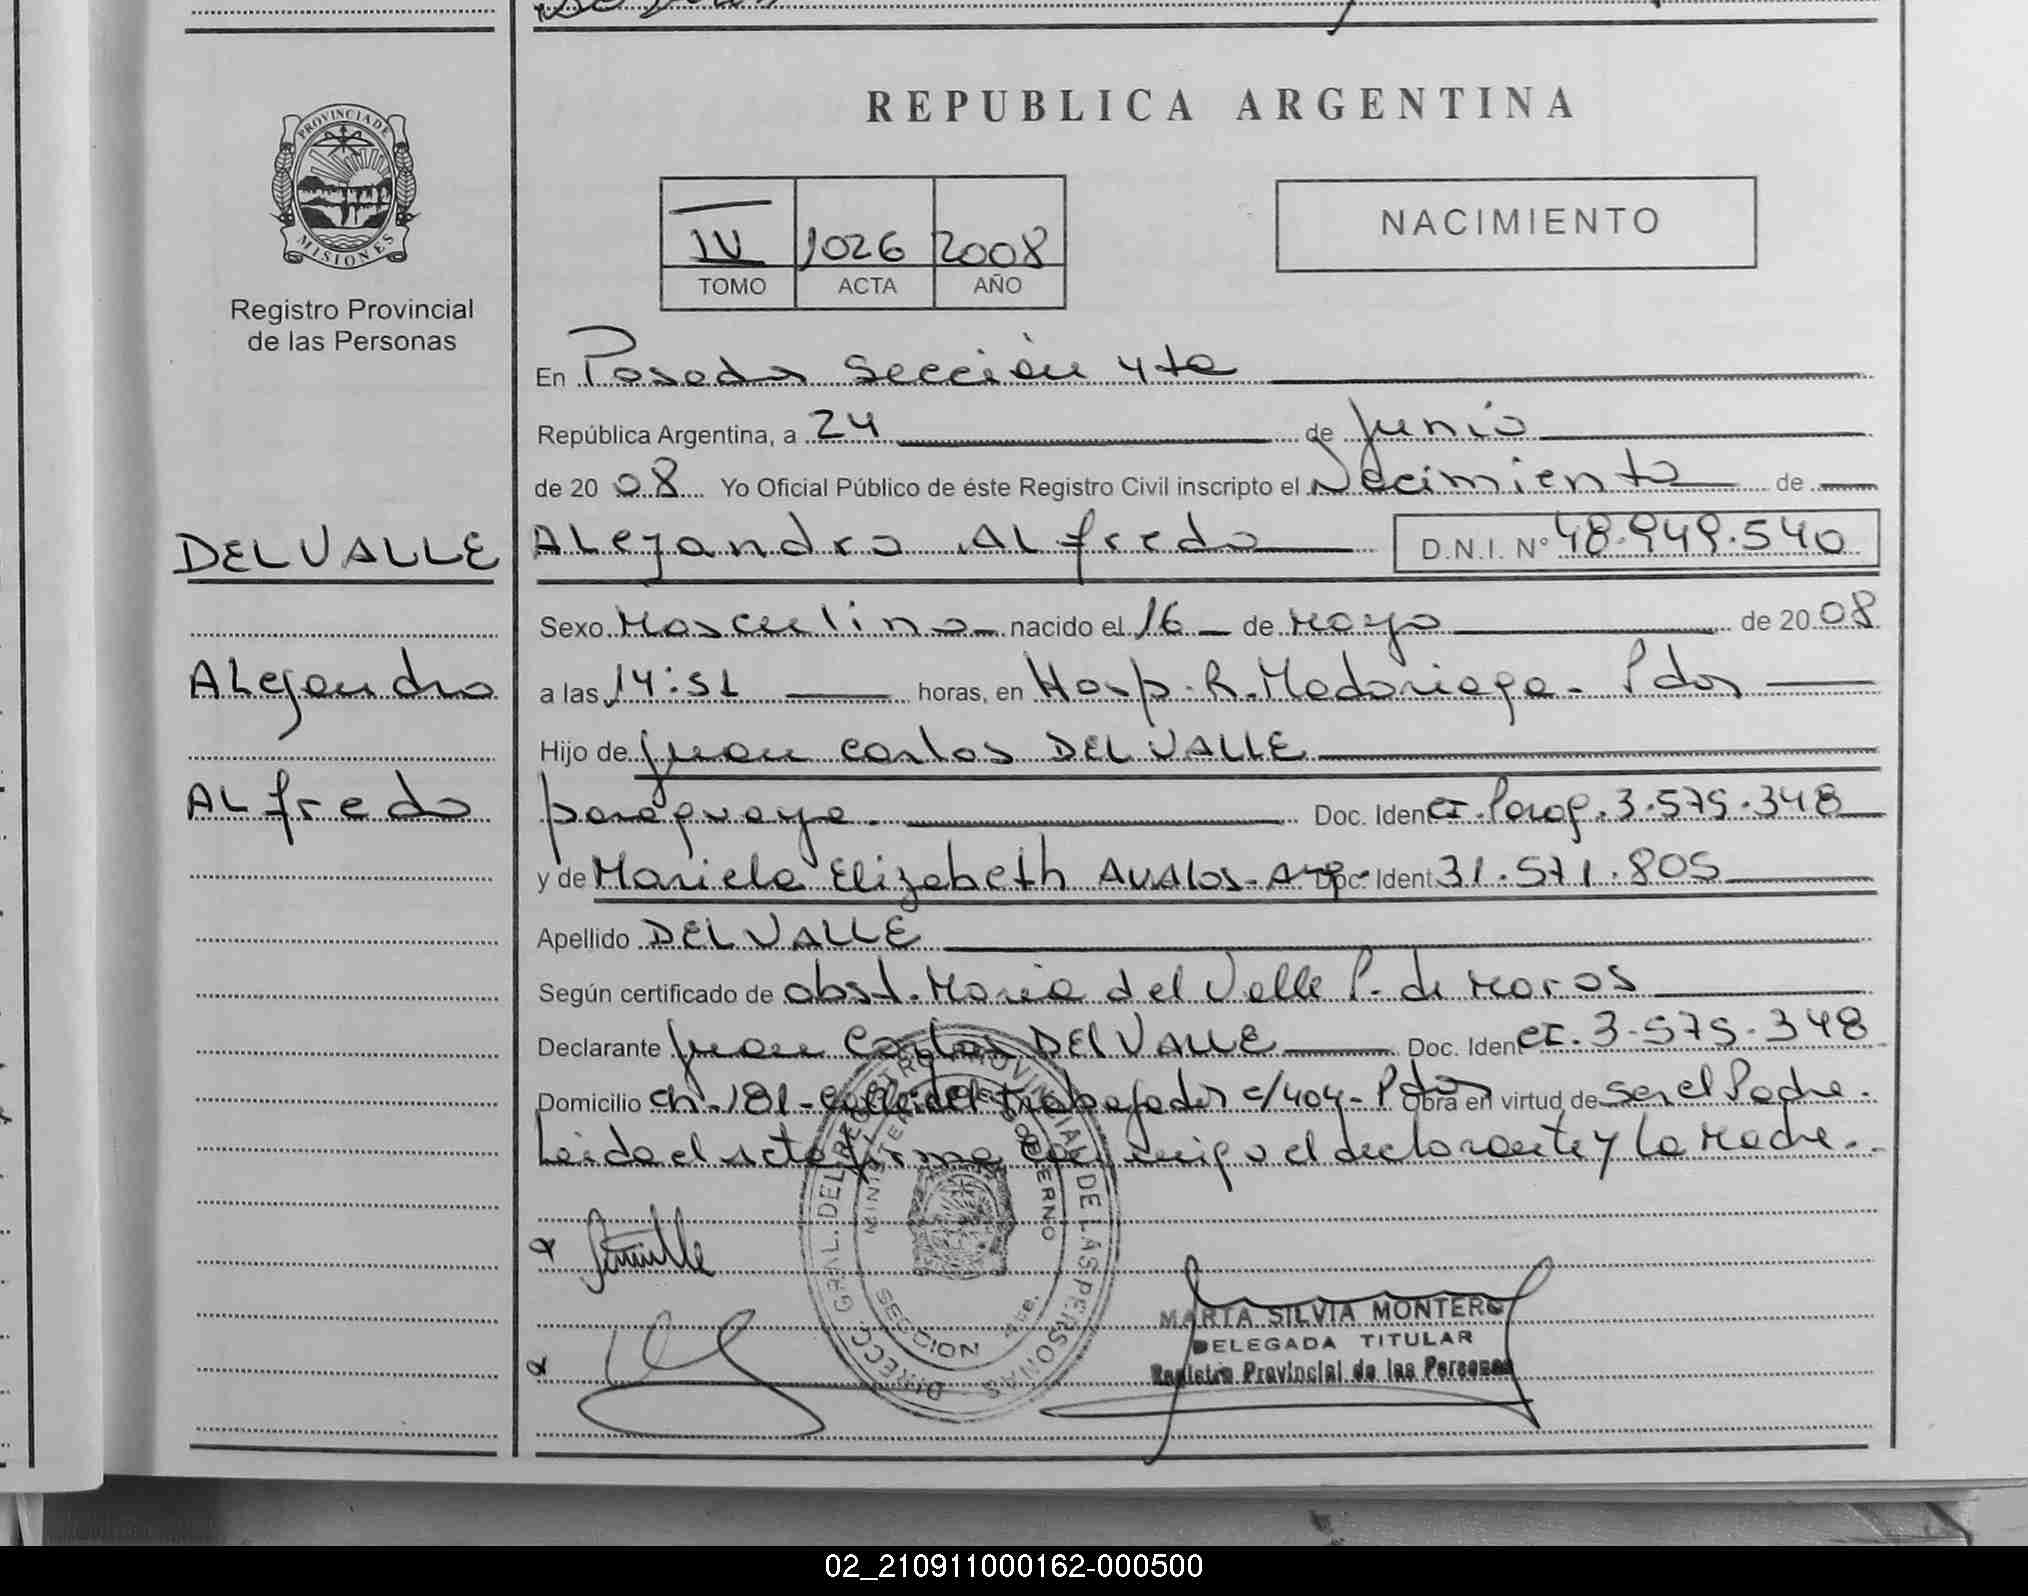 REPUBLICA ARGENTINA
PROVINCIA DE
MISIONES
Registro Provincial
de las Personas
IV 1026 2008
TOMO ACTA AÑO
NACIMIENTO
En Posadas Sección 4ta
República Argentina, a 24 de Junio
de 2008 Yo Oficial Público de éste Registro Civil inscripto el Nacimiento de
DELVALLE
Alejandro Alfredo D.N.I. N° 48.949.540
Sexo Masculino nacido el 16 de Mayo de 2008
Alejandro
a las 14:51 horas, en Hosp. R. Madariaga - Pdas
Hijo de Juan Carlos DELVALLE
Alfredo
paraguaya. Doc. Ident CI. Parag. 3.575.348
y de Mariela Elizabeth AVAlos - Arg. Doc. Ident 31.571.805
Apellido DELVALLE
Según certificado de obst. Maria del Valle P. de Maros
Declarante Juan Carlos DElVALLE Doc. Ident CI. 3.575.348
Domicilio Ch. 181 - Calle del trabajador c/404 - Pdas Obra en virtud de ser el Padre.
Leida el acta firma conmigo el declarante y la Madre.
DIRECC. GRAL. DEL REGISTRO PROVINCIAL DE LAS PERSONAS
MINISTERIO DE GOBIERNO
SECCION 4ta.
MARTA SILVIA MONTERO
DELEGADA TITULAR
Registro Provincial de las Personas
02_210911000162-000500